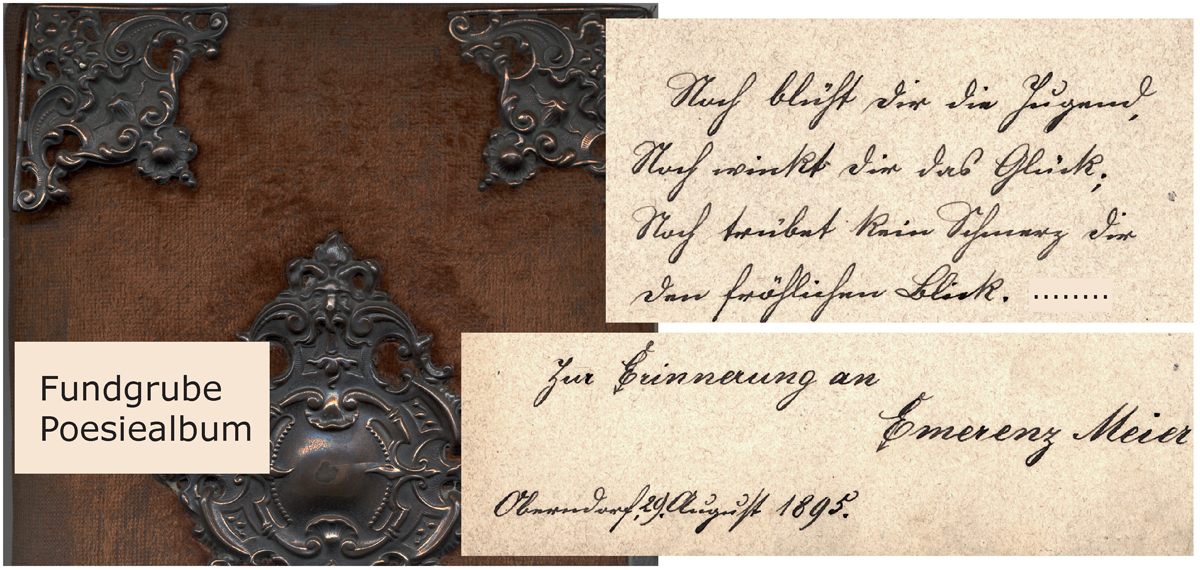 Fundgrube
Poesiealbum
Noch blüht dir die Jugend,
Noch winkt dir das Glück;
Noch trübet kein Schmerz dir
den fröhlichen Blick. ........
Zur Erinnerung an
Emerenz Meier
Oberndorf, 29. August 1895.